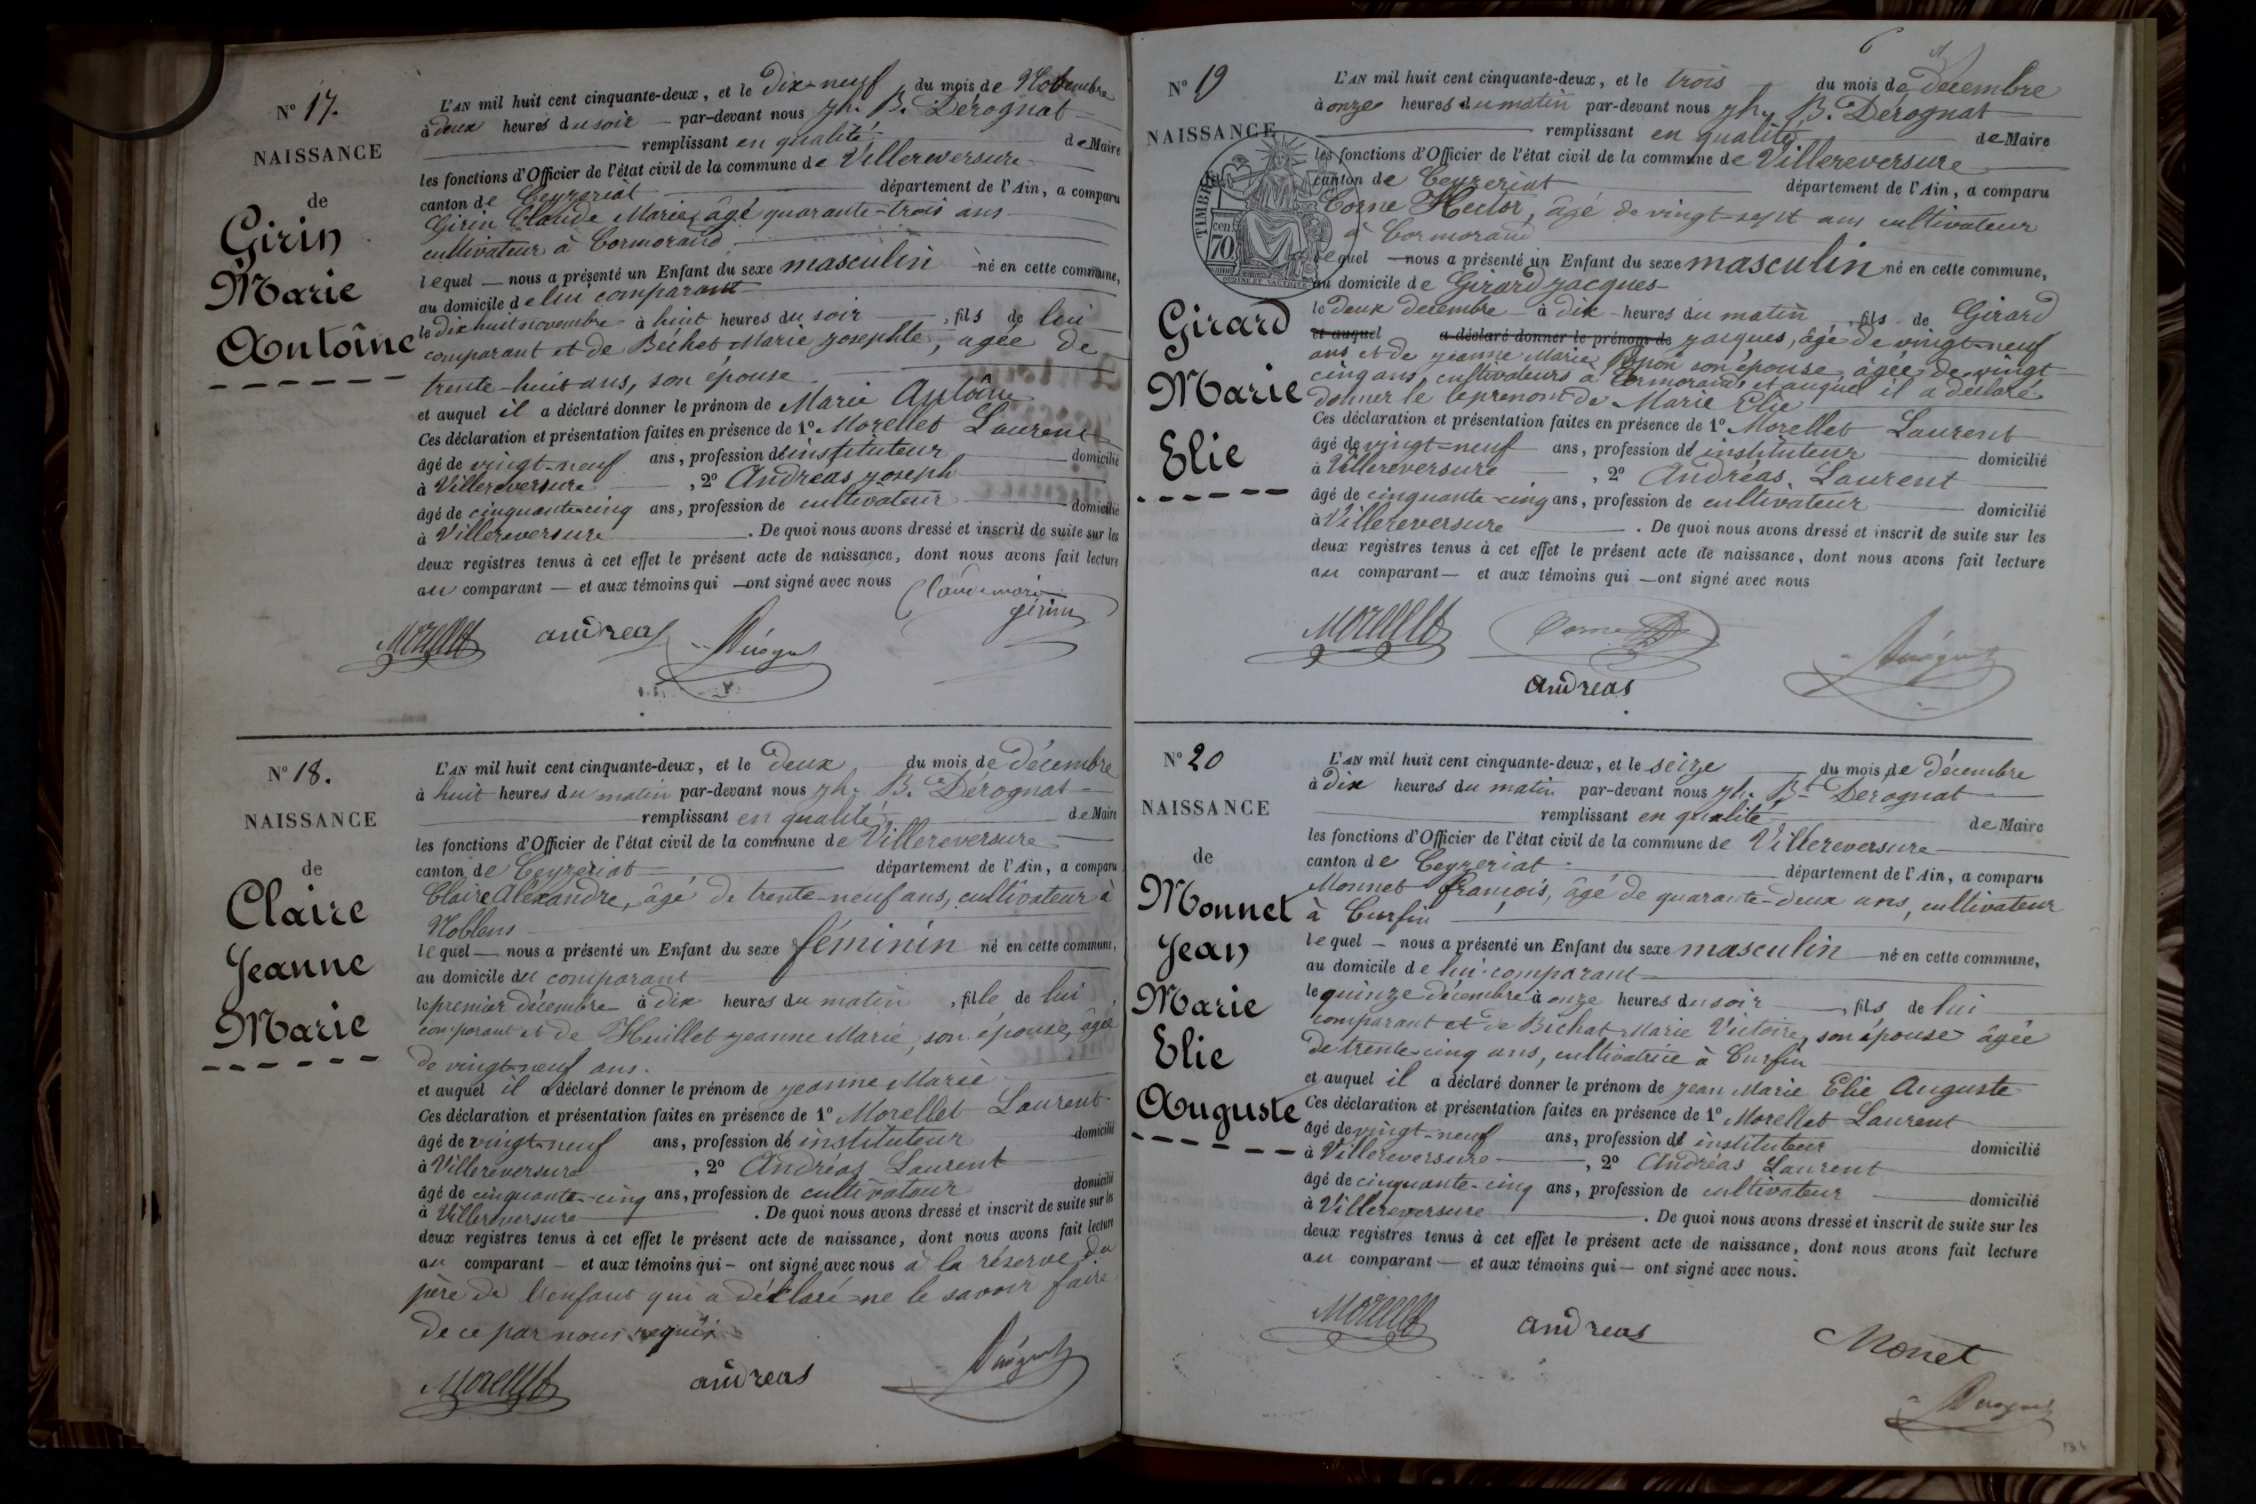 N° 17.
NAISSANCE
de
Girin
Marie
Antoine
L'AN mil huit cent cinquante-deux, et le Dix-neuf du mois de Novembre
à deux heures du soir par-devant nous Jh. B. Dérognat
remplissant en qualité de Maire
les fonctions d'Officier de l'état civil de la commune de Villereversure
canton de Ceyzeriat département de l'Ain, a comparu
Girin Claude Marie, âgé quarante-trois ans
cultivateur à Cormorand
lequel nous a présenté un Enfant du sexe masculin né en cette commune,
au domicile de lui comparant
le dix huit novembre à huit heures du soir, fils de lui
comparant et de Béchet Marie Josephte, agée de
trente-huit ans, son épouse
et auquel il a déclaré donner le prénom de Marie Antoine
Ces déclaration et présentation faites en présence de 1° Morellet Laurent
âgé de vingt-neuf ans, profession d'instituteur domicilié
à Villereversure, 2° Andréas Joseph
âgé de cinquante-cinq ans, profession de cultivateur domicilié
à Villereversure. De quoi nous avons dressé et inscrit de suite sur les
deux registres tenus à cet effet le présent acte de naissance, dont nous avons fait lecture
au comparant et aux témoins qui ont signé avec nous
Claude marie
girin
Morellet andreas Dérognat
N° 18.
NAISSANCE
de
Claire
Jeanne
Marie
L'AN mil huit cent cinquante-deux, et le deux du mois de décembre
à huit heures du matin par-devant nous Jh. B. Dérognat
remplissant en qualité de Maire
les fonctions d'Officier de l'état civil de la commune de Villereversure
canton de Ceyzeriat département de l'Ain, a comparu
Claire Alexandre, âgé de trente-neuf ans, cultivateur à
Noblens
lequel nous a présenté un Enfant du sexe féminin né en cette commune,
au domicile du comparant
le premier décembre à dix heures du matin, fille de lui
comparant et de Huillet Jeanne Marie, son épouse, âgée
de vingt-neuf ans.
et auquel il a déclaré donner le prénom de Jeanne Marie
Ces déclaration et présentation faites en présence de 1° Morellet Laurent
âgé de vingt-neuf ans, profession d'instituteur domicilié
à Villereversure, 2° Andréas Laurent
âgé de cinquante-cinq ans, profession de cultivateur domicilié
à Villereversure. De quoi nous avons dressé et inscrit de suite sur les
deux registres tenus à cet effet le présent acte de naissance, dont nous avons fait lecture
au comparant et aux témoins qui ont signé avec nous à la réserve du
père de l'enfant qui a déclaré ne le savoir faire
de ce par nous requis
Morellet andreas Dérognat
6
N° 19
NAISSANCE
TIMBRE
70 cen
Girard
Marie
Elie
L'AN mil huit cent cinquante-deux, et le trois du mois de décembre
à onze heures du matin par-devant nous Jh. B. Dérognat
remplissant en qualité de Maire
les fonctions d'Officier de l'état civil de la commune de Villereversure
canton de Ceyzeriat département de l'Ain, a comparu
Corne Hector, âgé de vingt-sept ans cultivateur
à Cormorand
lequel nous a présenté un Enfant du sexe masculin né en cette commune,
au domicile de Girard Jacques
le deux decembre à dix heures du matin, fils de Girard
et auquel a déclaré donner le prénom de Jacques, âgé de vingt-neuf
ans et de Jeanne Marie son épouse âgée de vingt
cinq ans, cultivateurs à Cormorand, et auquel il a déclaré
donner le leprenom de Marie Elie
Ces déclaration et présentation faites en présence de 1° Morellet Laurent
âgé de vingt-neuf ans, profession d'instituteur domicilié
à Villereversure, 2° Andréas, Laurent
âgé de cinquante-cinq ans, profession de cultivateur domicilié
à Villereversure. De quoi nous avons dressé et inscrit de suite sur les
deux registres tenus à cet effet le présent acte de naissance, dont nous avons fait lecture
au comparant et aux témoins qui ont signé avec nous
Morellet Corne Dérognat
andreas
N° 20
NAISSANCE
de
Monnet
Jean
Marie
Elie
Auguste
L'AN mil huit cent cinquante-deux, et le seize du mois de décembre
à dix heures du matin par-devant nous Jh. Bt Dérognat
remplissant en qualité de Maire
les fonctions d'Officier de l'état civil de la commune de Villereversure
canton de Ceyzeriat département de l'Ain, a comparu
Monnet françois, âgé de quarante-deux ans, cultivateur
à Curfin
lequel nous a présenté un Enfant du sexe masculin né en cette commune,
au domicile de lui comparant
le quinze décembre à onze heures du soir, fils de lui
comparant et de Bichat Marie Victoire, son épouse âgée
de trente-cinq ans, cultivatrice à Curfin
et auquel il a déclaré donner le prénom de Jean Marie Elie Auguste
Ces déclaration et présentation faites en présence de 1° Morellet Laurent
âgé de vingt-neuf ans, profession d'instituteur domicilié
à Villereversure, 2° Andréas Laurent
âgé de cinquante-cinq ans, profession de cultivateur domicilié
à Villereversure. De quoi nous avons dressé et inscrit de suite sur les
deux registres tenus à cet effet le présent acte de naissance, dont nous avons fait lecture
au comparant et aux témoins qui ont signé avec nous.
Morellet andreas Monet
Dérognat